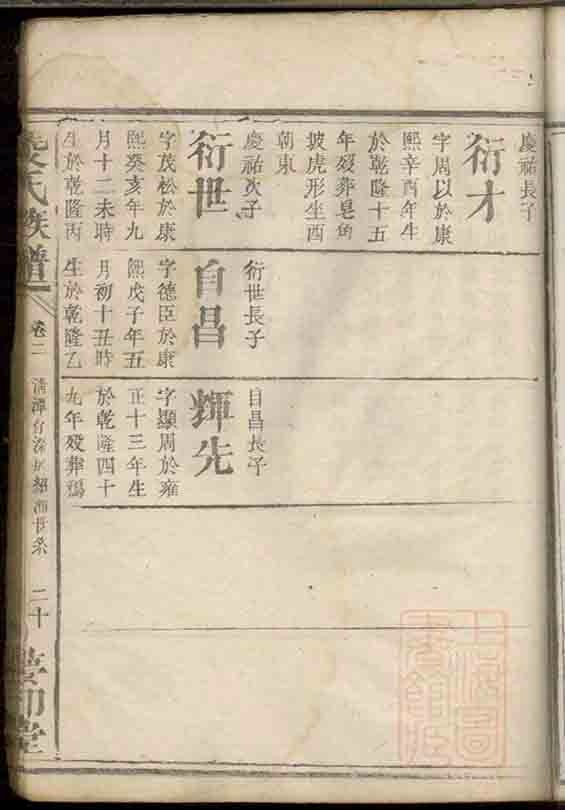 慶祐長子
衍才
字周以於康
熙辛酉年生
於乾隆十五
年歿葬皂角
坡虎形坐酉
朝東
慶祐次子
衍世
字茂松於康
熙癸亥年九
月十二未時
生於乾隆丙
衍世長子
自昌
字德臣於康
熙戊子年五
月初十丑時
生於乾隆乙
自昌長子
輝先
字顯周於雍
正十三年生
於乾隆四十
九年歿葬鴉
氏族譜
卷二
清潭
世系
二十
堂
上海圖
書館藏